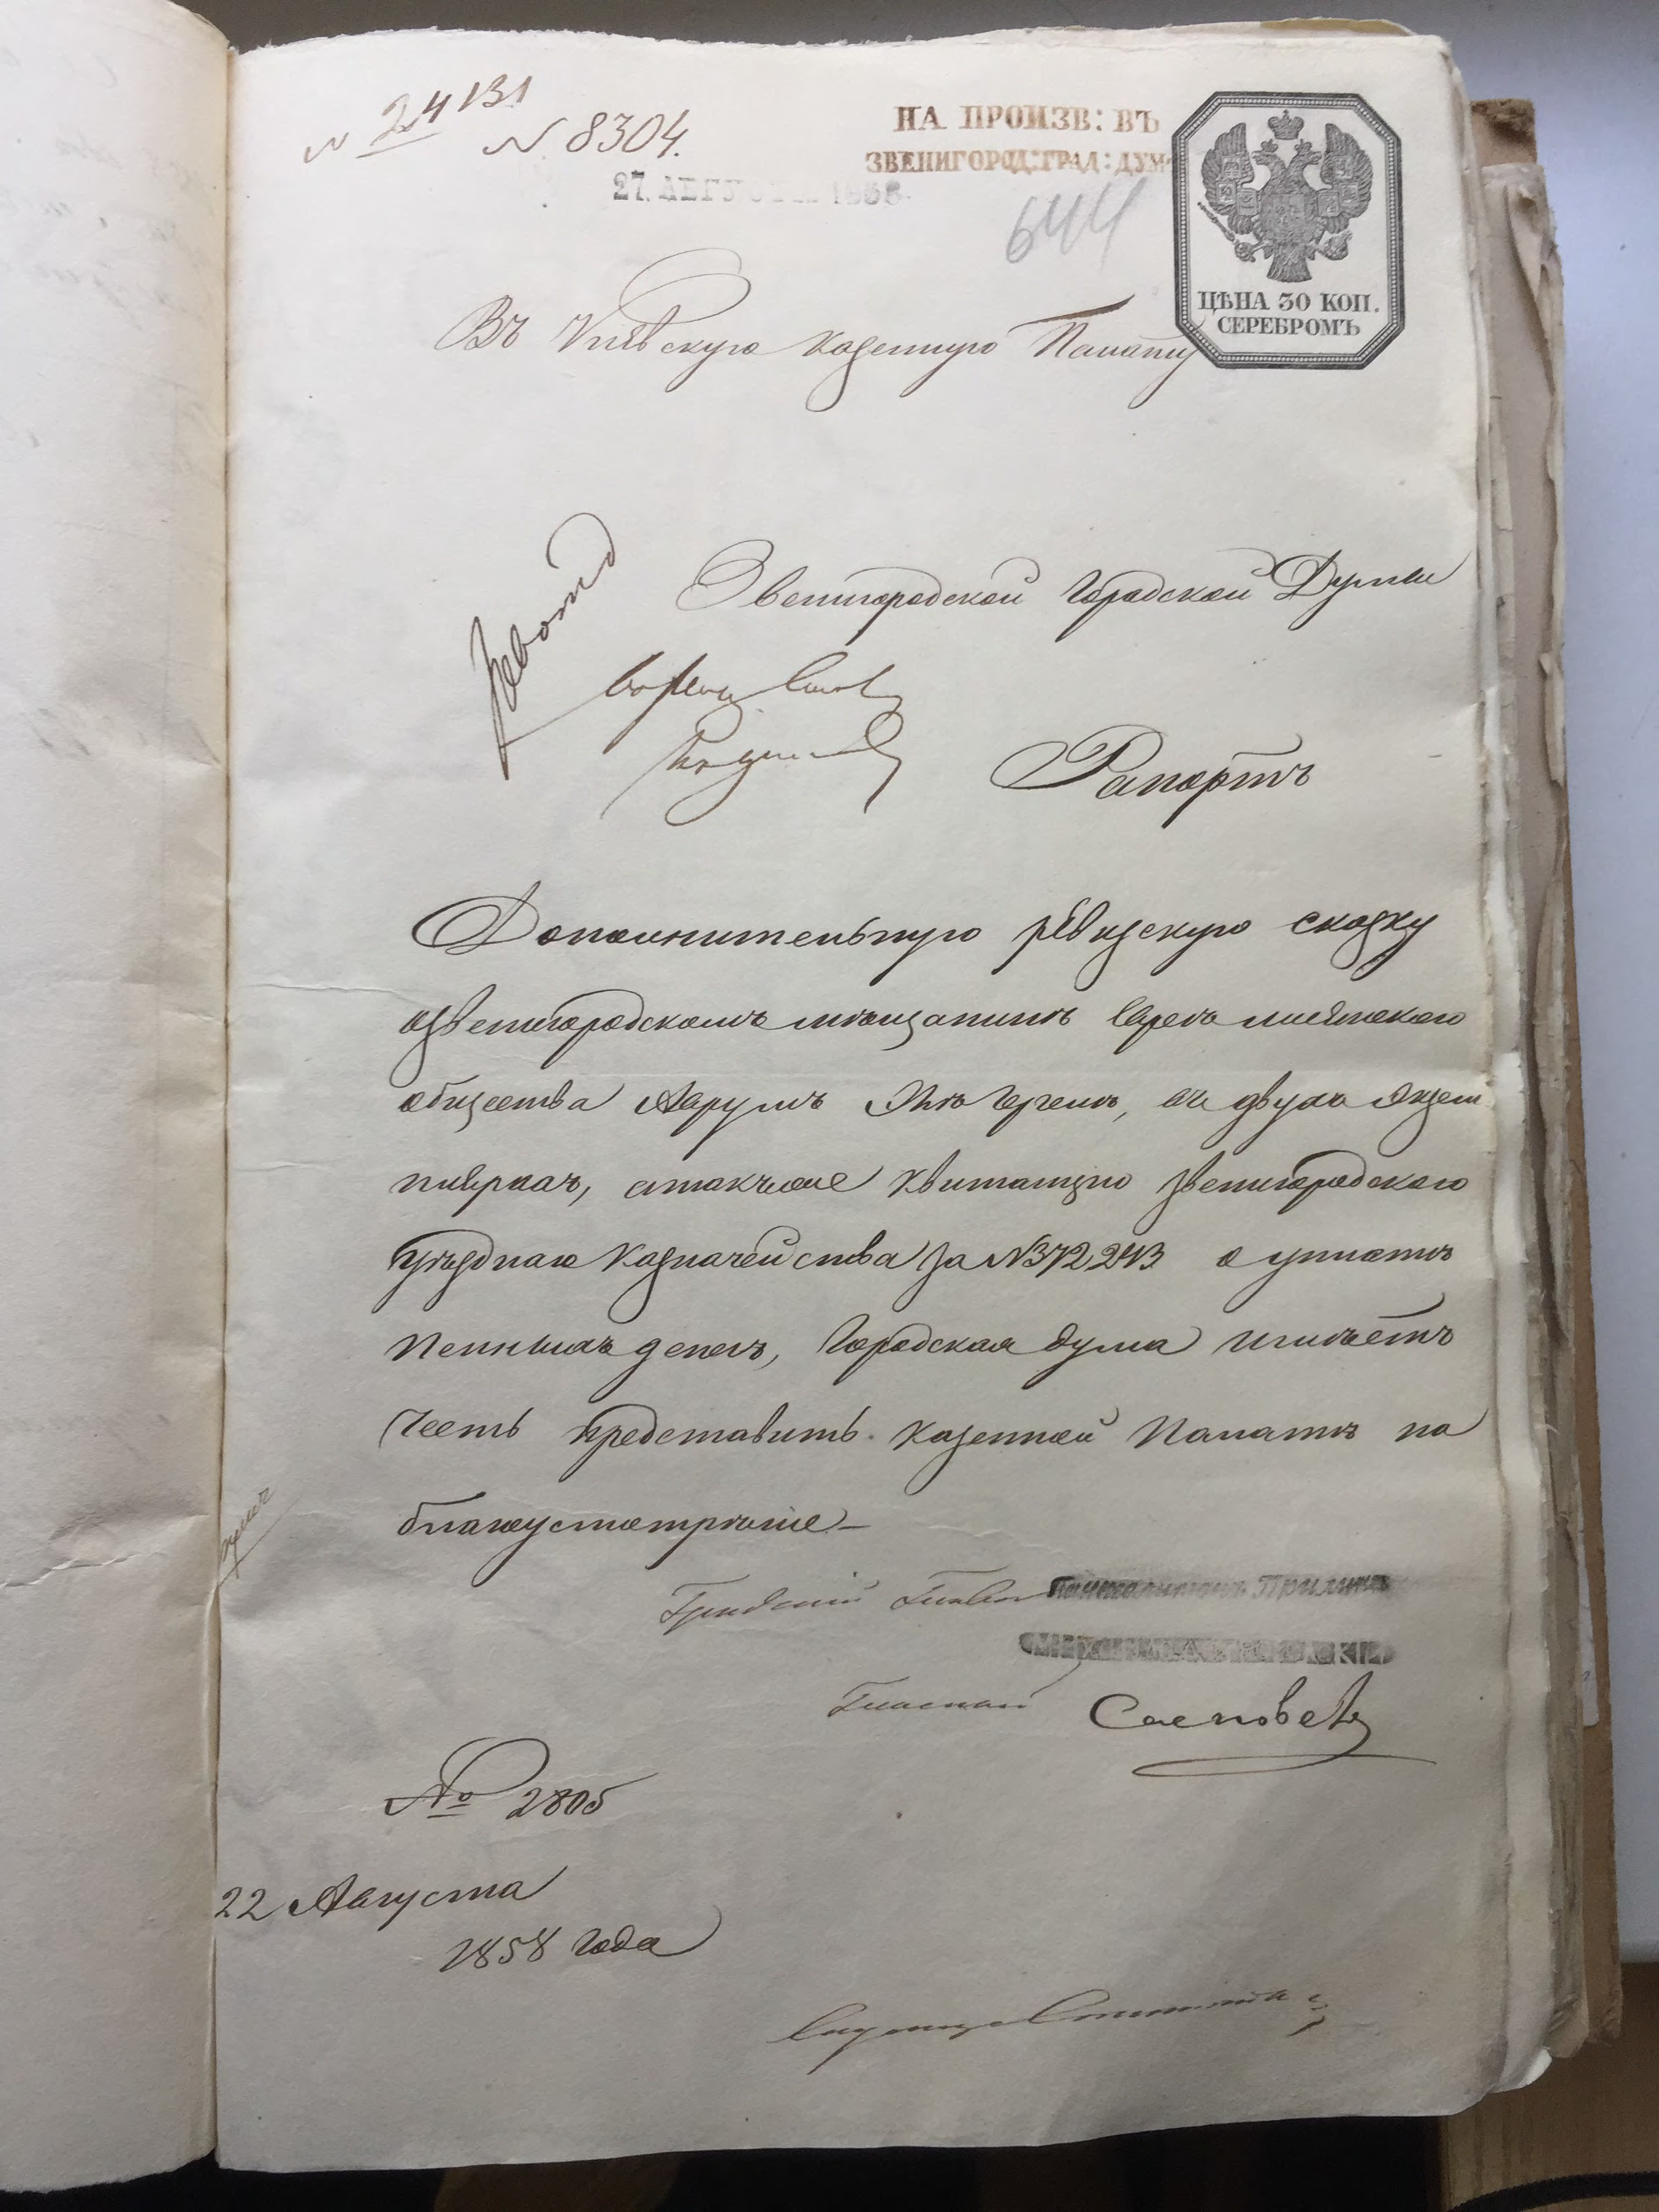 № 24131
№ 8304.
НА ПРОИЗВ: ВЪ
ЗВЕНИГОРОД:ГРАД:ДУМ
27. АВГУСТА 1858
644
ЦѢНА 30 КОП.
СЕРЕБРОМЪ
Въ Кіевскую Казенную Палату
Звенигородской Городской Думы
Рапортъ
Дополнительную ревизскую сказку
озвенигородскомъ мѣщанинѣ Еврейскаго
общества Аврумъ въ двухъ Экзем
пляразъ, атакъже Квитанцію Звенигородского
Уѣзднаго Казначейства за №372243 о уплатѣ
Пенныхъ денегъ, Городская дума имѣетъ
Честь представить Казенной Палатѣ на
благоусмотрѣніе
Градский Глава
Гласный
№ 2805
22 Августа
1858 года